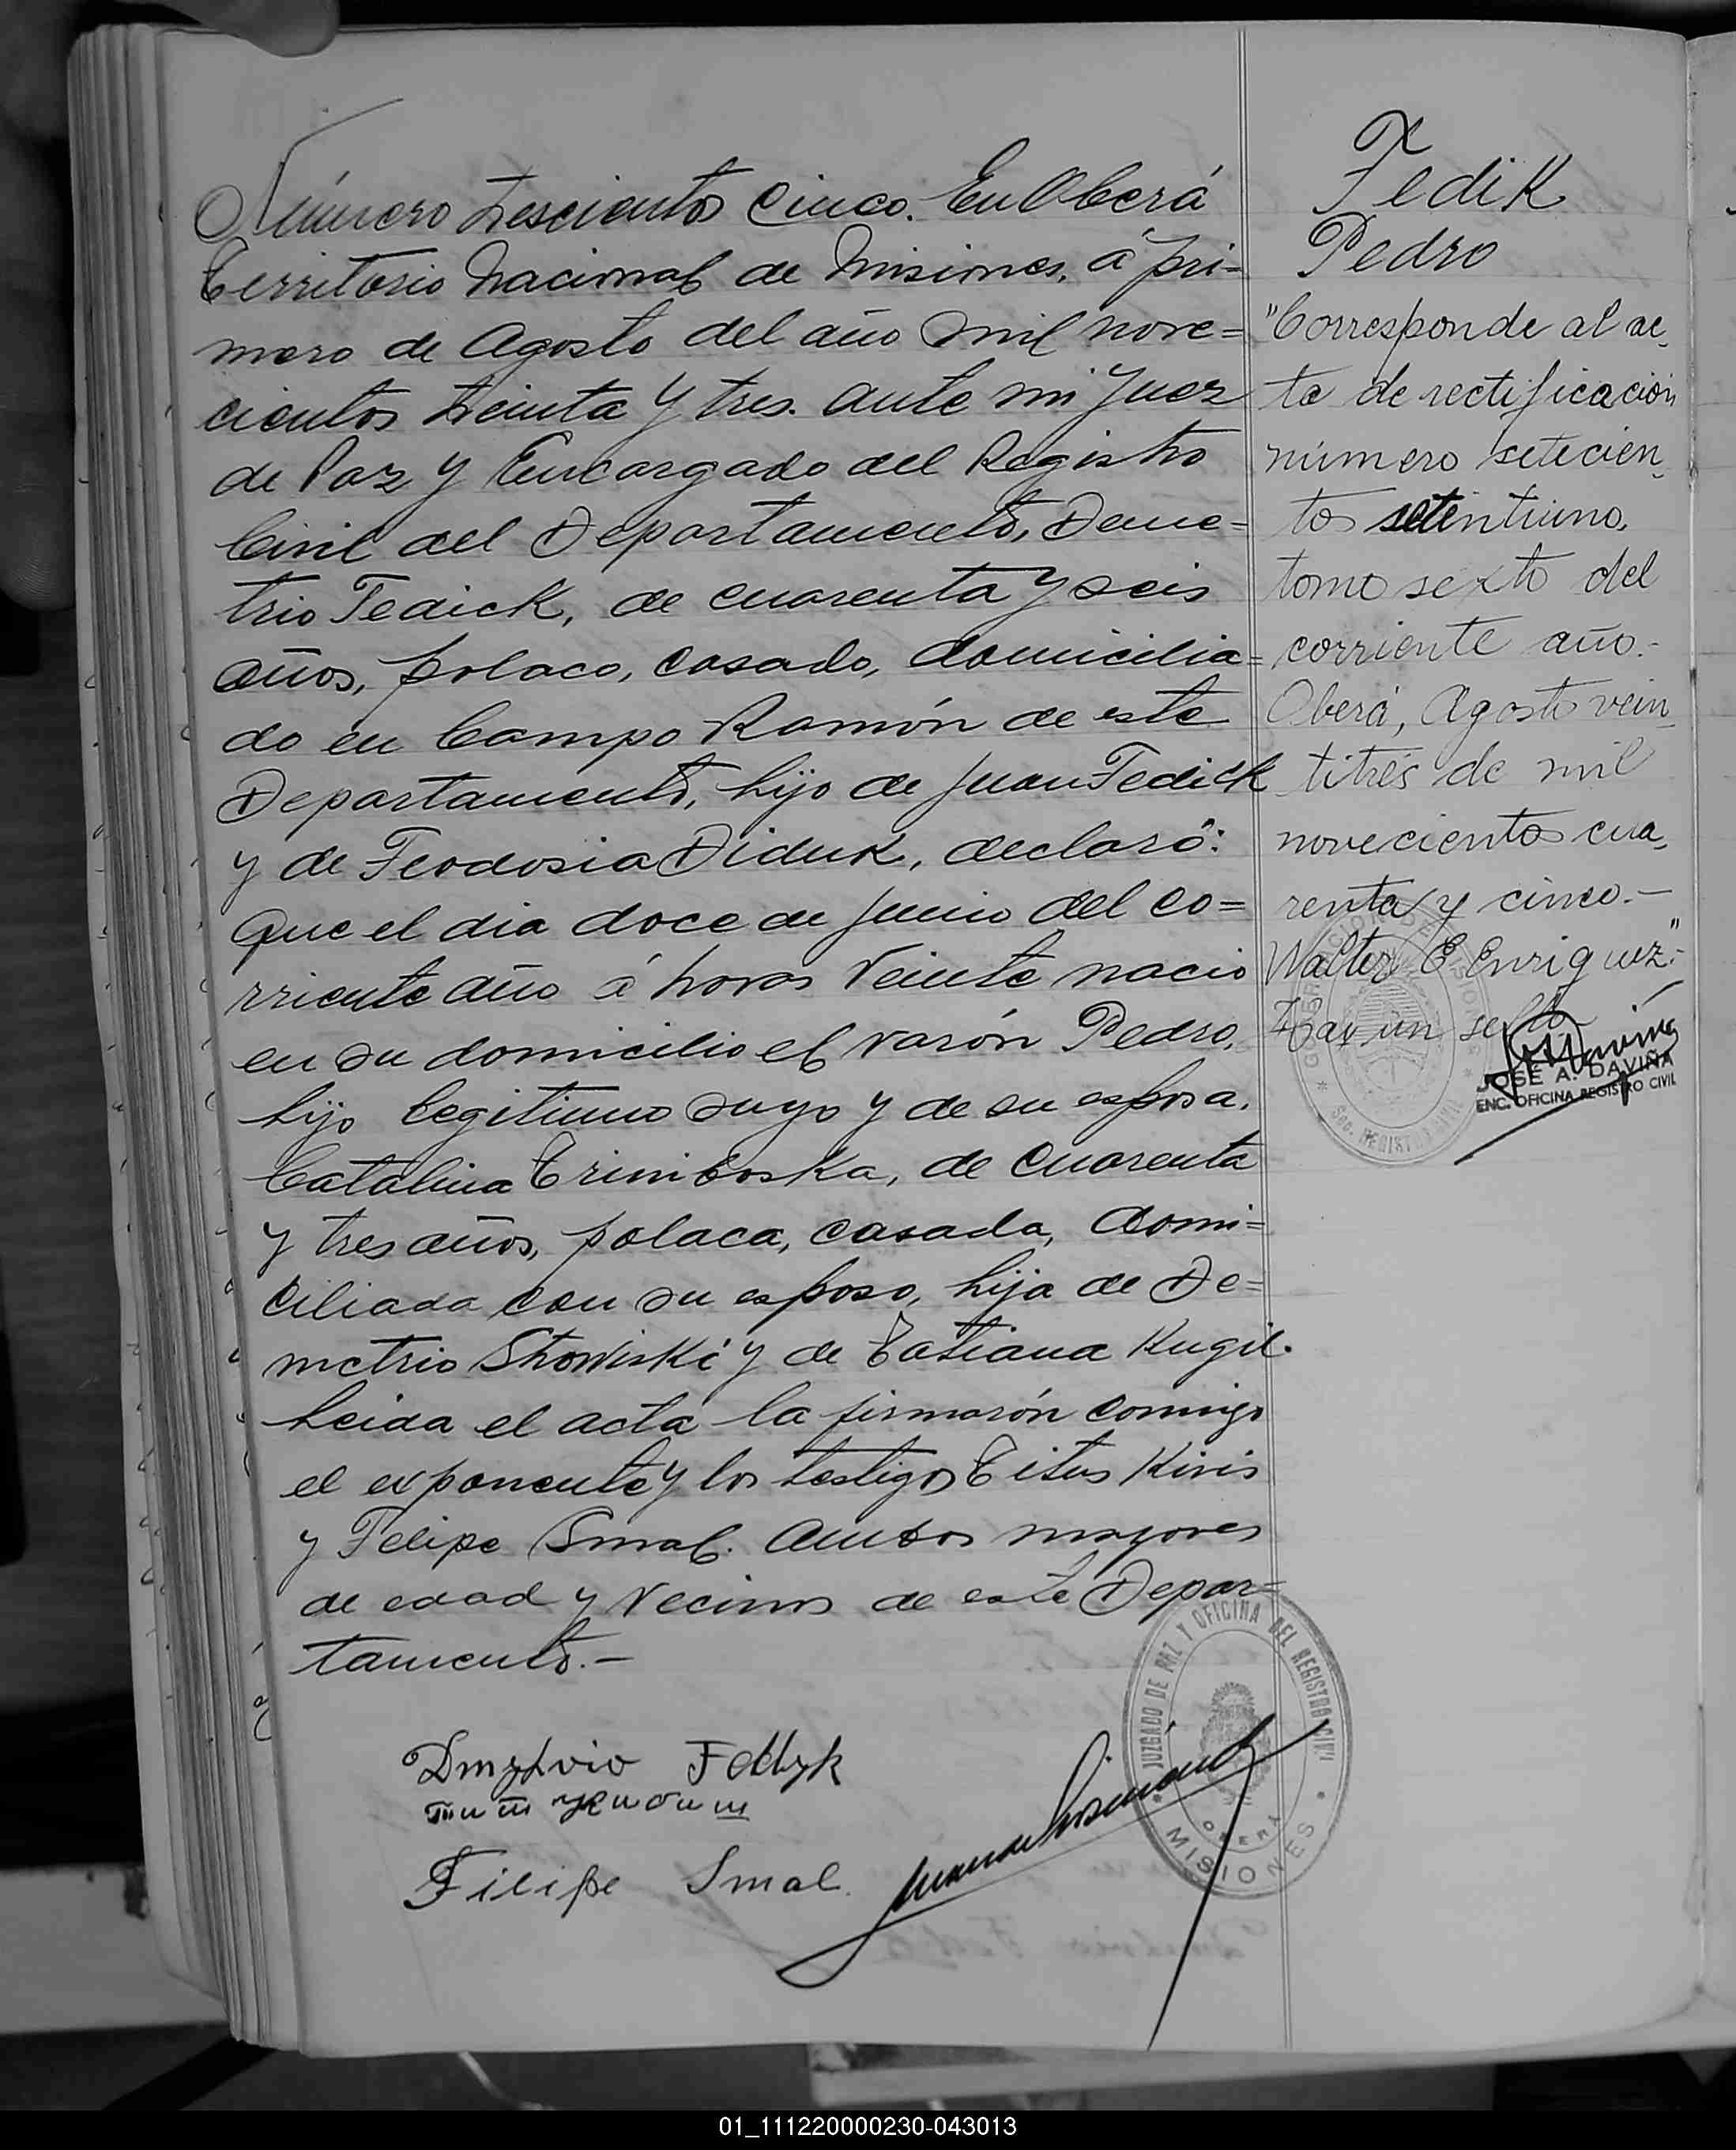 Número trescientos cinco. En Oberá
Territorio Nacional de Misiones, á pri=
mero de Agosto del año mil nove=
cientos treinta y tres. ante mi Juez
de Paz y Encargado del Registro
Civil del Departamento, Deme=
trio Fedick, de cuarenta y seis
años, polaco, casado, domicilia=
do en Campo Ramón de este
Departamento, hijo de Juan Fedick
y de Teodosia Diduk, declaró:
Que el dia doce de Junio del co=
rriente año á horas veinte nacio
en su domicilio el varón Pedro,
hijo legitimo suyo y de su esposa,
Catalina, de cuarenta
y tres años, polaca, casada, domi=
ciliada con su esposo, hija de De=
metrio y de Tatiana Kugil.
Leida el acta la firmarón conmigo
el exponente y los testigos Titus Kivis
y Felipe Smal. Ambos mayores
de edad y vecinos de este Depar=
tamento.-
Dmytvio Feddyk
Filipe Smal.
JUZGADO DE PAZ Y OFICINA DEL REGISTRO CIVIL
OBERA
MISIONES
Fedik
Pedro
"Corresponde al ac
ta de rectificación
número setecien
tos setentiuno,
tomo sexto del
corriente año.-
Oberá, Agosto vein
titrés de mil
novecientos cua
renta y cinco.-
Walter E Enriquez".-
Hay un sello
JOSÉ A. DAVIÑA
ENC. OFICINA REGISTRO CIVIL
SEC. REGISTRO CIVIL
01_111220000230-043013